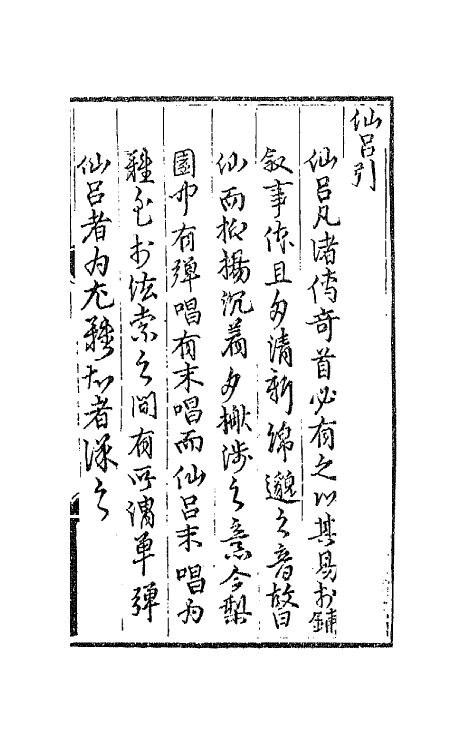 仙呂引
仙呂凡諸傳奇首必有之以其易於鋪
叙事且多清新綿邈之音故曰
仙而抑揚沉着多涉之意今梨
園中有彈唱有末唱而仙呂末唱為
難至於弦索之間有所謂單彈
仙呂者為尤難知者深之